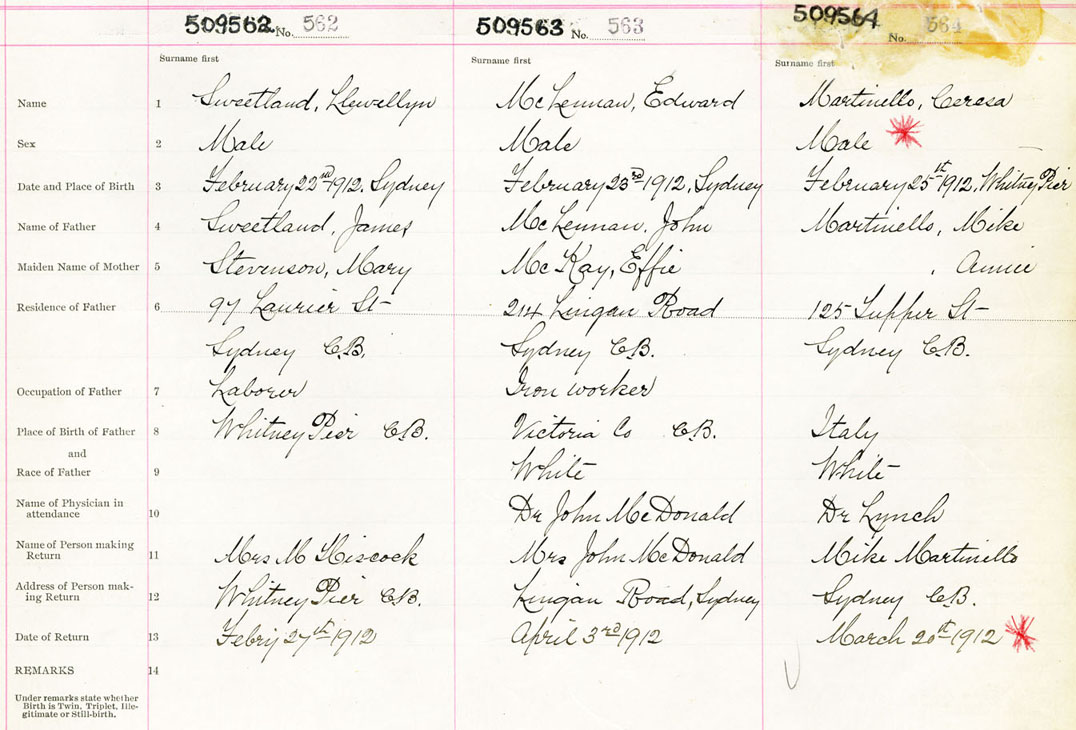 509562 No. 562 509563 No. 563 509564 No. 564
Surname first Surname first Surname first
Name 1 Sweetland, Llewellyn McLennan, Edward Martinello, Ceresa
Sex 2 Male Male Male
Date and Place of Birth 3 February 22nd 1912, Sydney February 23rd 1912, Sydney February 25th 1912, Whitney Pier
Name of Father 4 Sweetland, James McLennan, John Martinello, Mike
Maiden Name of Mother 5 Stevenson, Mary McKay, Effie , Annie
Residence of Father 6 97 Laurier St 214 Lingan Road 125 Tupper St
Sydney C.B. Sydney C.B. Sydney C.B.
Occupation of Father 7 Laborer Iron worker
Place of Birth of Father 8 Whitney Pier C.B. Victoria Co C.B. Italy
and
Race of Father 9 White White
Name of Physician in
attendance 10 Dr John McDonald Dr Lynch
Name of Person making
Return 11 Mrs M Hiscock Mrs John McDonald Mike Martinello
Address of Person mak-
ing Return 12 Whitney Pier C.B. Lingan Road, Sydney Sydney C.B.
Date of Return 13 Febry 27th 1912 April 3rd 1912 March 20th 1912
REMARKS 14
Under remarks state whether
Birth is Twin, Triplet, Ille-
gitimate or Still-birth.